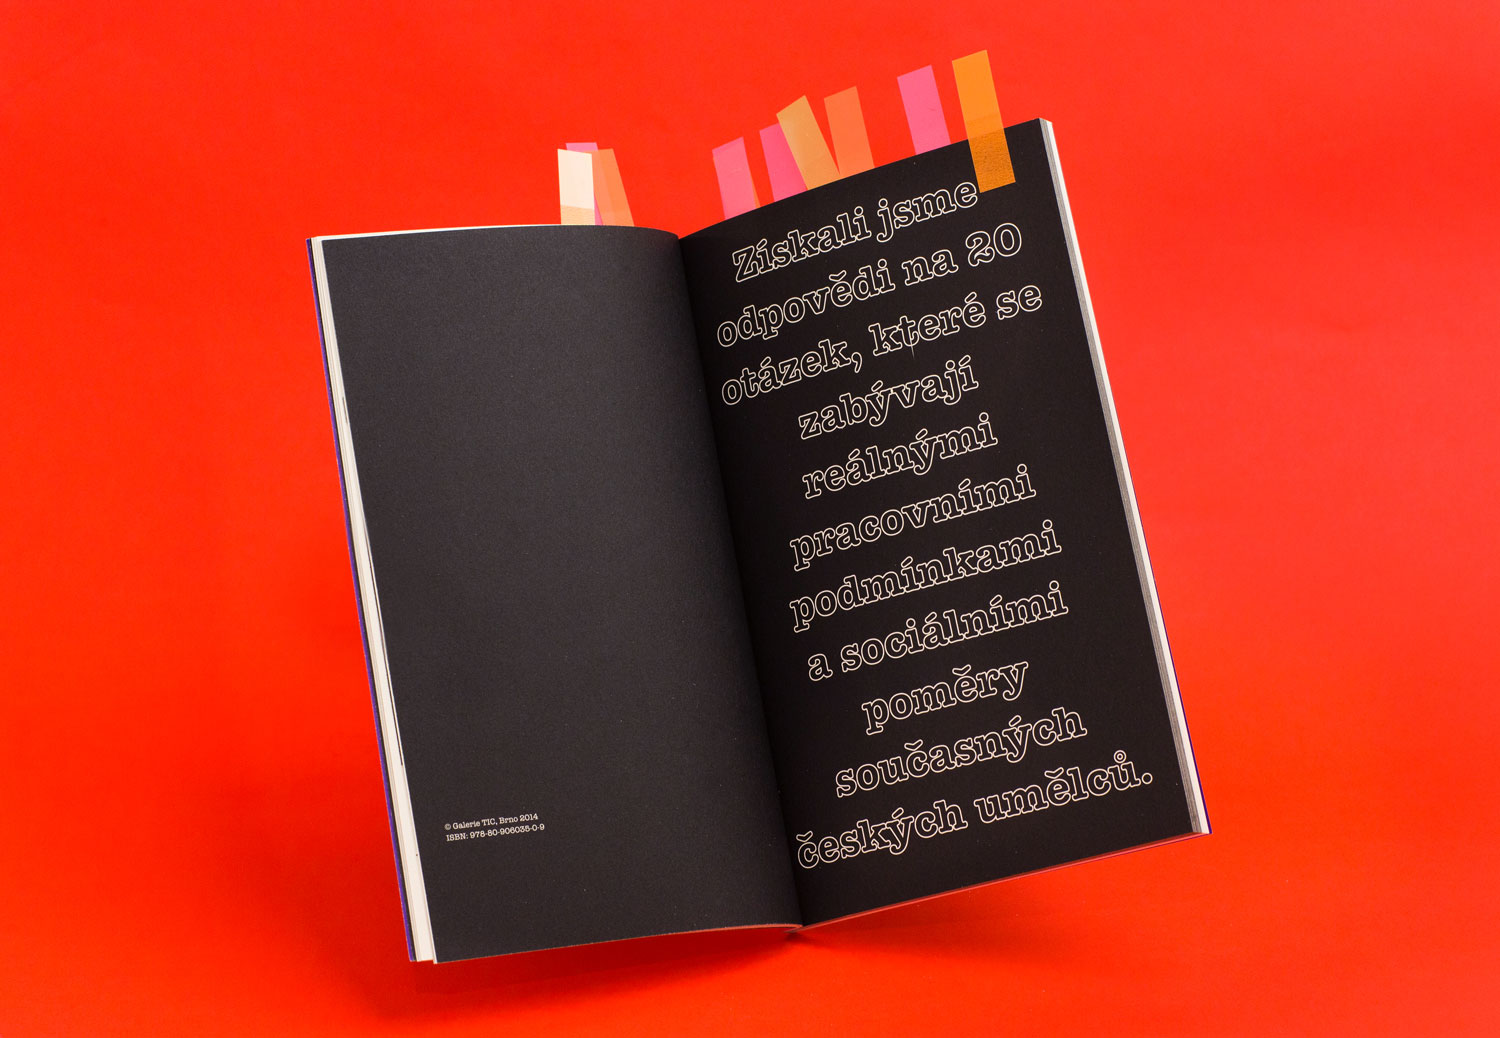 © Galerie TIC, Brno 2014
ISBN: 978-80-906035-0-9
Získali jsme
odpovědi na 20
otázek, které se
zabývají
reálnými
pracovními
podmínkami
a sociálními
poměry
současných
českých umělců.